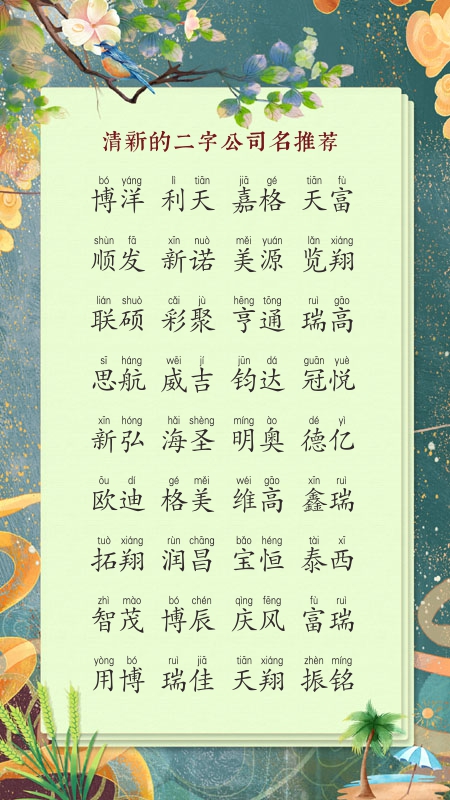 清新的二字公司名推荐
bó yáng lì tiān jiā gé tiān fù
博洋 利天 嘉格 天富
shùn fā xīn nuò měi yuán lǎn xiáng
顺发 新诺 美源 览翔
lián shuò cǎi jù hēng tōng ruì gāo
联硕 彩聚 亨通 瑞高
sī háng wēi jí jūn dá guān yuè
思航 威吉 钧达 冠悦
xīn hóng hǎi shèng míng ào dé yì
新弘 海圣 明奥 德亿
ōu dí gé měi wéi gāo xīn ruì
欧迪 格美 维高 鑫瑞
tuò xiáng rùn chāng bǎo héng tài xī
拓翔 润昌 宝恒 泰西
zhì mào bó chén qìng fēng fù ruì
智茂 博辰 庆风 富瑞
yòng bó ruì jiā tiān xiáng zhèn míng
用博 瑞佳 天翔 振铭